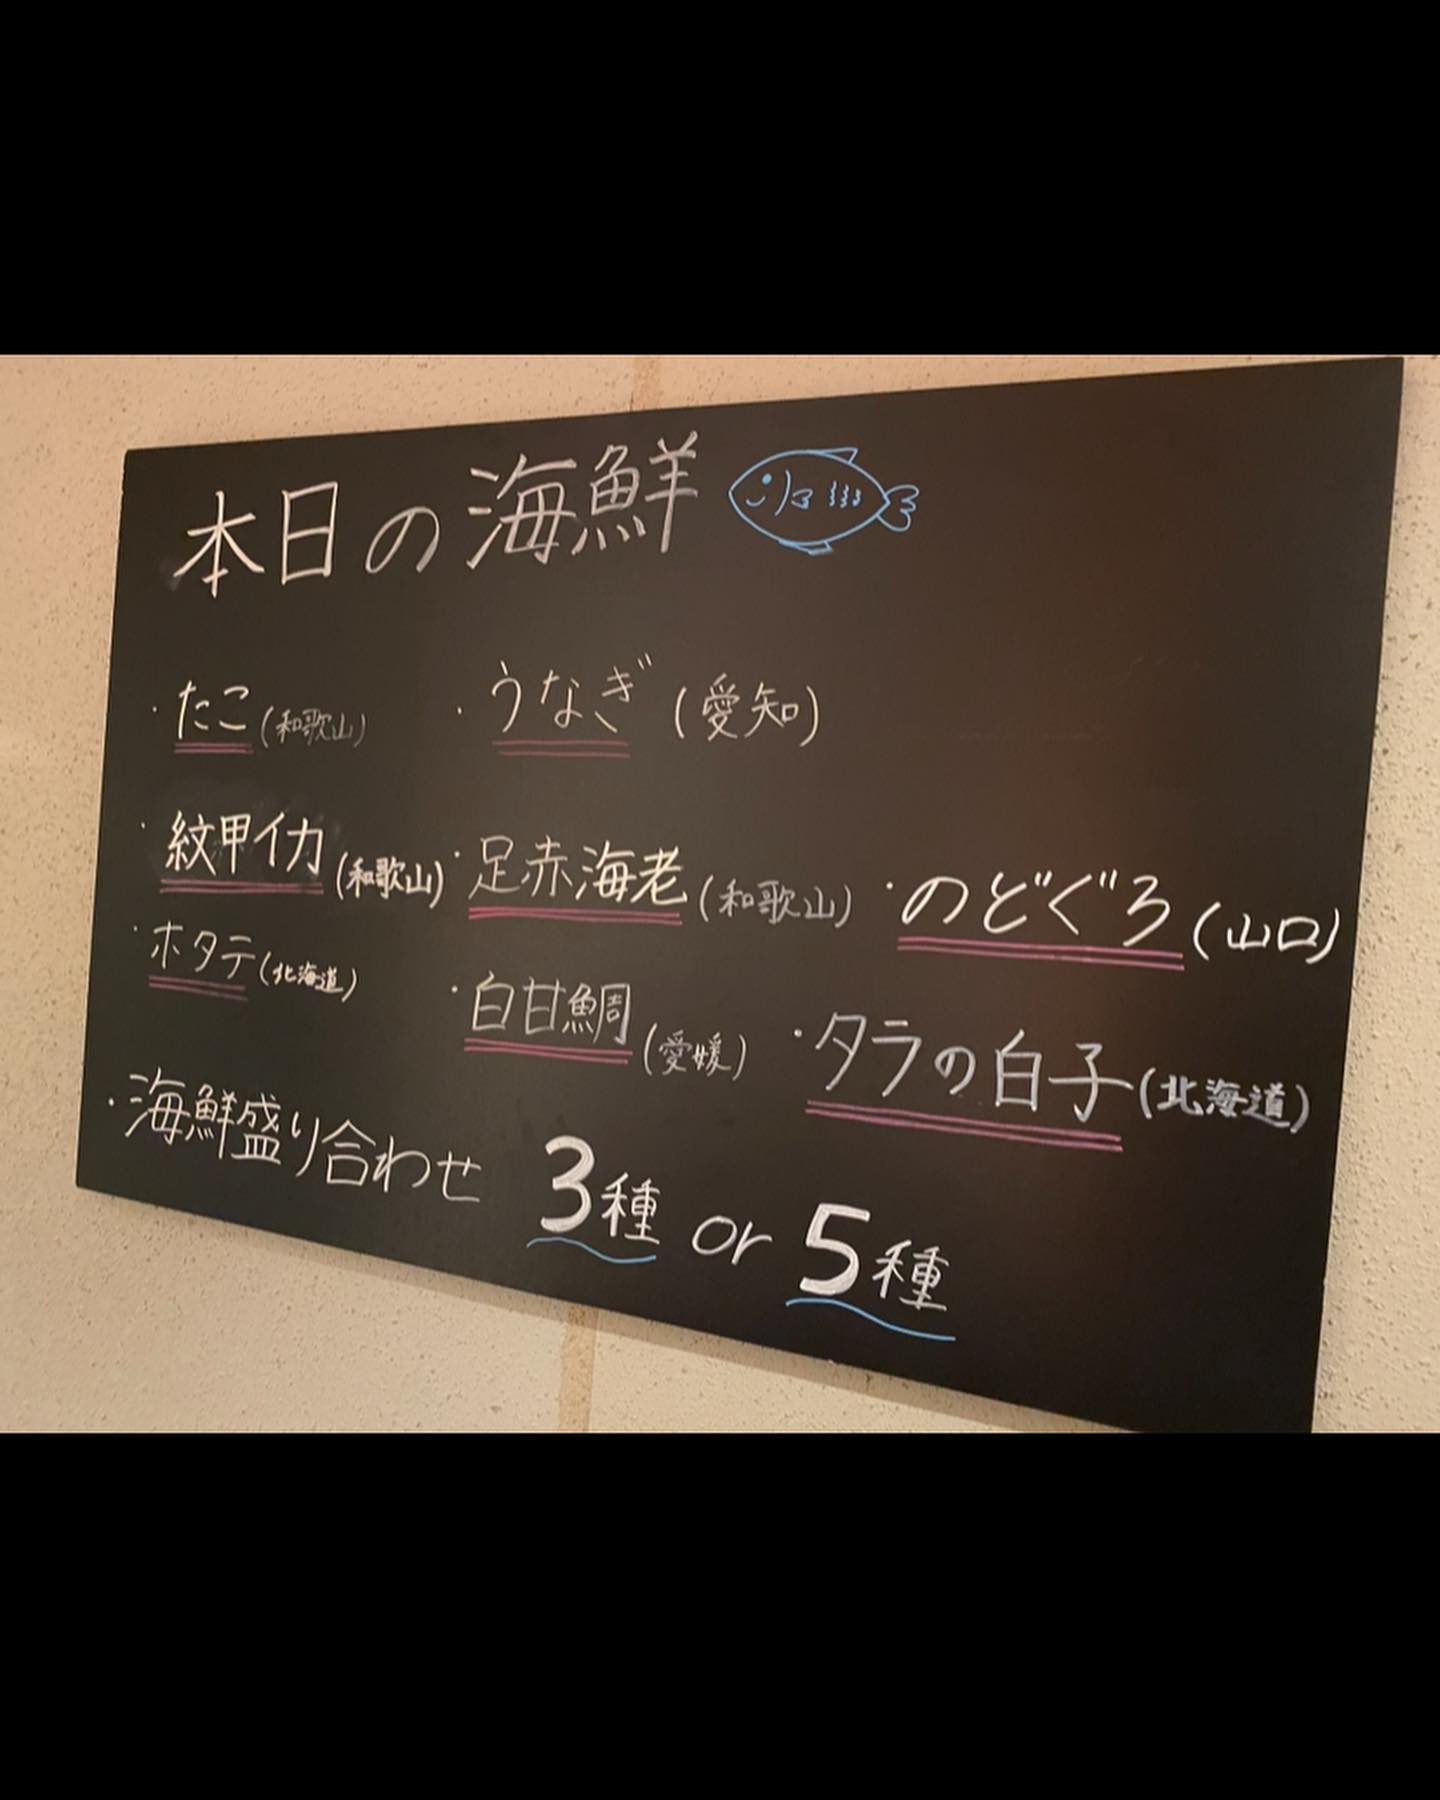 本日の海鮮
・たこ(和歌山) ・うなぎ(愛知)
・紋甲イカ(和歌山) ・足赤海老(和歌山) ・のどぐろ(山口)
・ホタテ(北海道) ・白甘鯛(愛媛) ・タラの白子(北海道)
・海鮮盛り合わせ 3種 or 5種